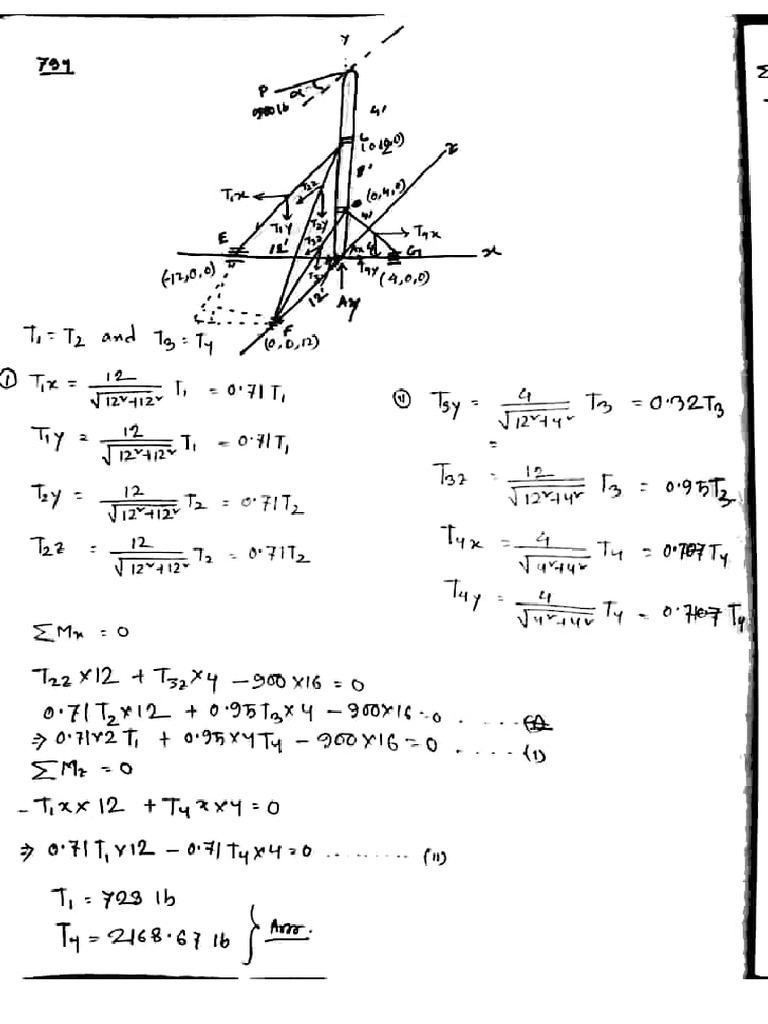 739
Y
P
α
900 lb
4'
(0,12,0)
8'
z
(0,4,0)
4'
T₁x
T₂z
T₁y
T₂y
T₃z
T₄x
E
12'
Ax
G
x
(-12,0,0)
T₄y
(4,0,0)
12'
Ay
F
(0,0,12)
T₁ = T₂ and T₃ = T₄
① T₁x = 12/√12²+12² T₁ = 0.71T₁
T₁y = 12/√12²+12² T₁ = 0.71T₁
T₂y = 12/√12²+12² T₂ = 0.71T₂
T₂z = 12/√12²+12² T₂ = 0.71T₂
⑪ T₃y = 4/√12²+4² T₃ = 0.32T₃
=
T₃z = 12/√12²+4² T₃ = 0.95T₃
T₄x = 4/√4²+4² T₄ = 0.707T₄
T₄y = 4/√4²+4² T₄ = 0.707 T₄
ΣMx = 0
T₂z×12 + T₃z×4 - 900×16 = 0
0.71T₂×12 + 0.95T₃×4 - 900×16 = 0 . ......
⇒ 0.71×2 T₁ + 0.95×4T₄ - 900×16 = 0 . .... (I)
ΣMz = 0
-T₁x×12 + T₄x×4 = 0
⇒ 0.71T₁×12 - 0.71T₄×4 = 0 ......... (II)
T₁ = 723 lb
T₄ = 2168.67 lb } Ans.
Σ